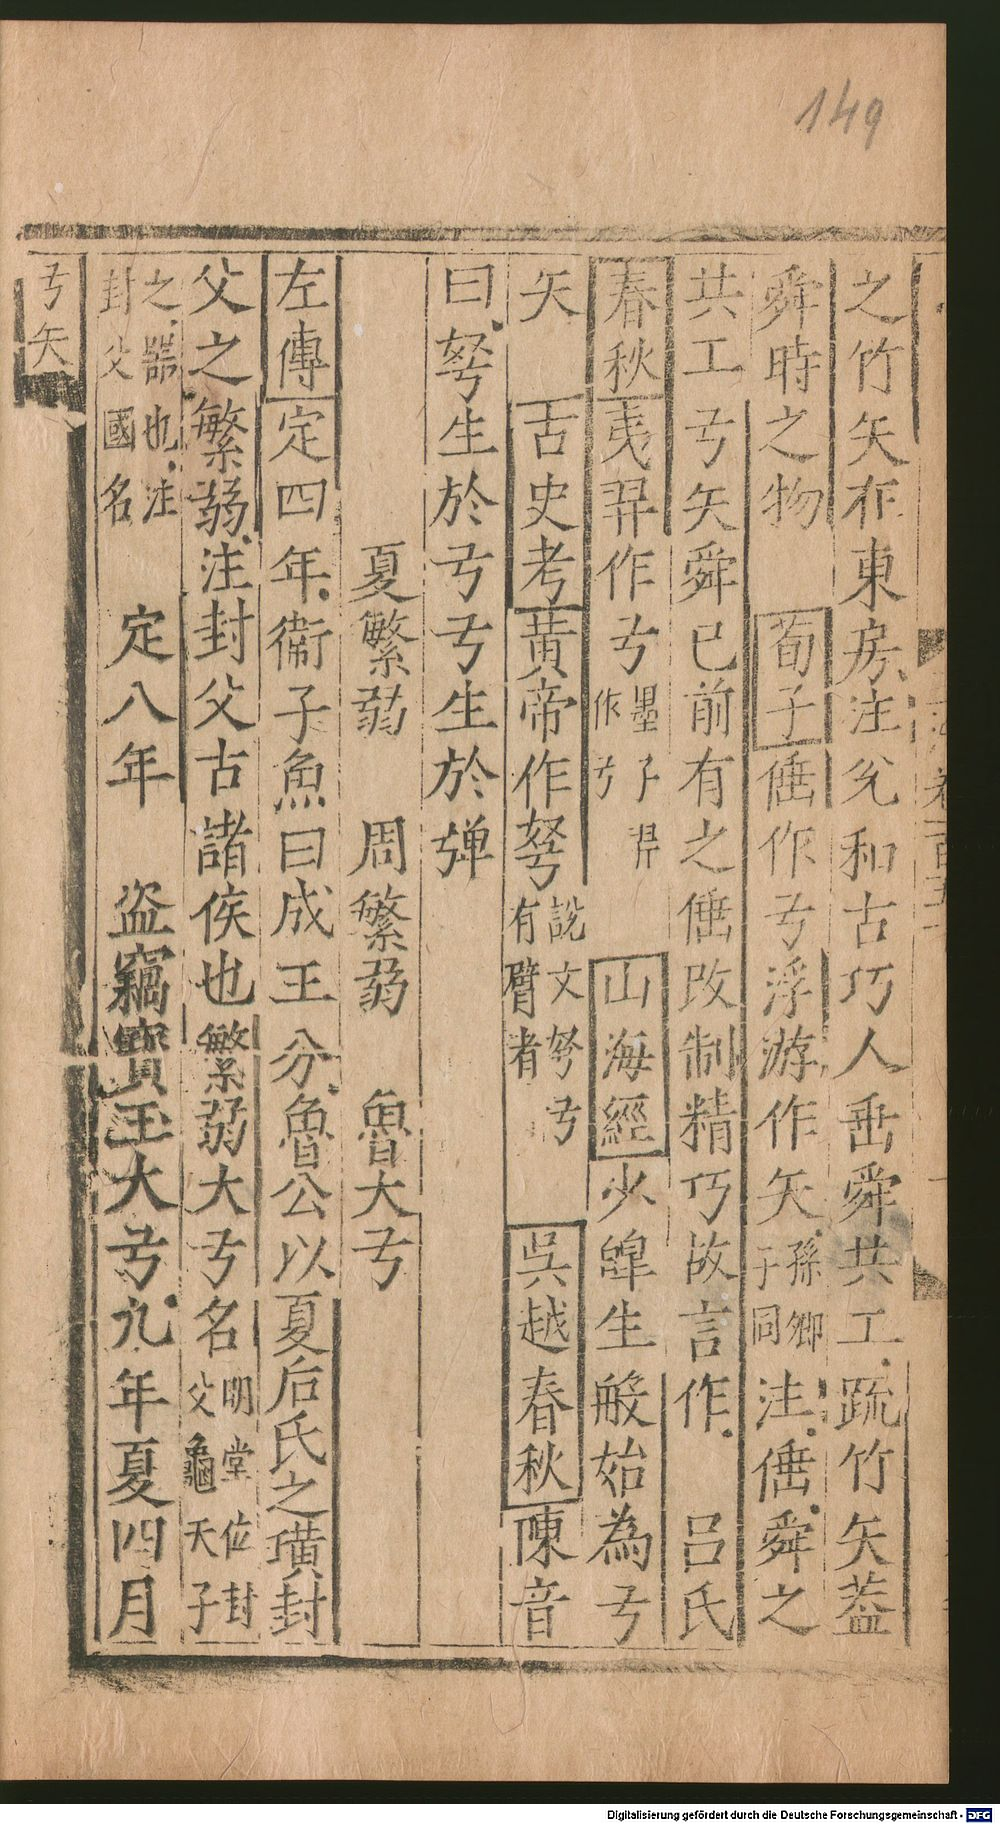 149
之竹矢在東房注兊和古巧人垂舜共工疏竹矢葢
舜時之物 荀子倕作弓浮游作矢孫卿子同注倕舜之
共工弓矢舜已前有之倕改制精巧故言作 呂氏
春秋夷羿作弓墨子羿作弓 山海經少皥生般始為弓
矢 古史考黃帝作弩說文弩弓有臂者 吳越春秋陳音
曰弩生於弓弓生於弹
夏繁弱 周繁弱 魯大弓
左傳定四年衞子魚曰成王分魯公以夏后氏之璜封
父之繁弱注封父古諸侯也繁弱大弓名明堂位封父龜天子
之器也注封父國名 定八年 盜竊寶玉大弓九年夏四月
弓矢
Digitalisierung gefördert durch die Deutsche Forschungsgemeinschaft - DFG